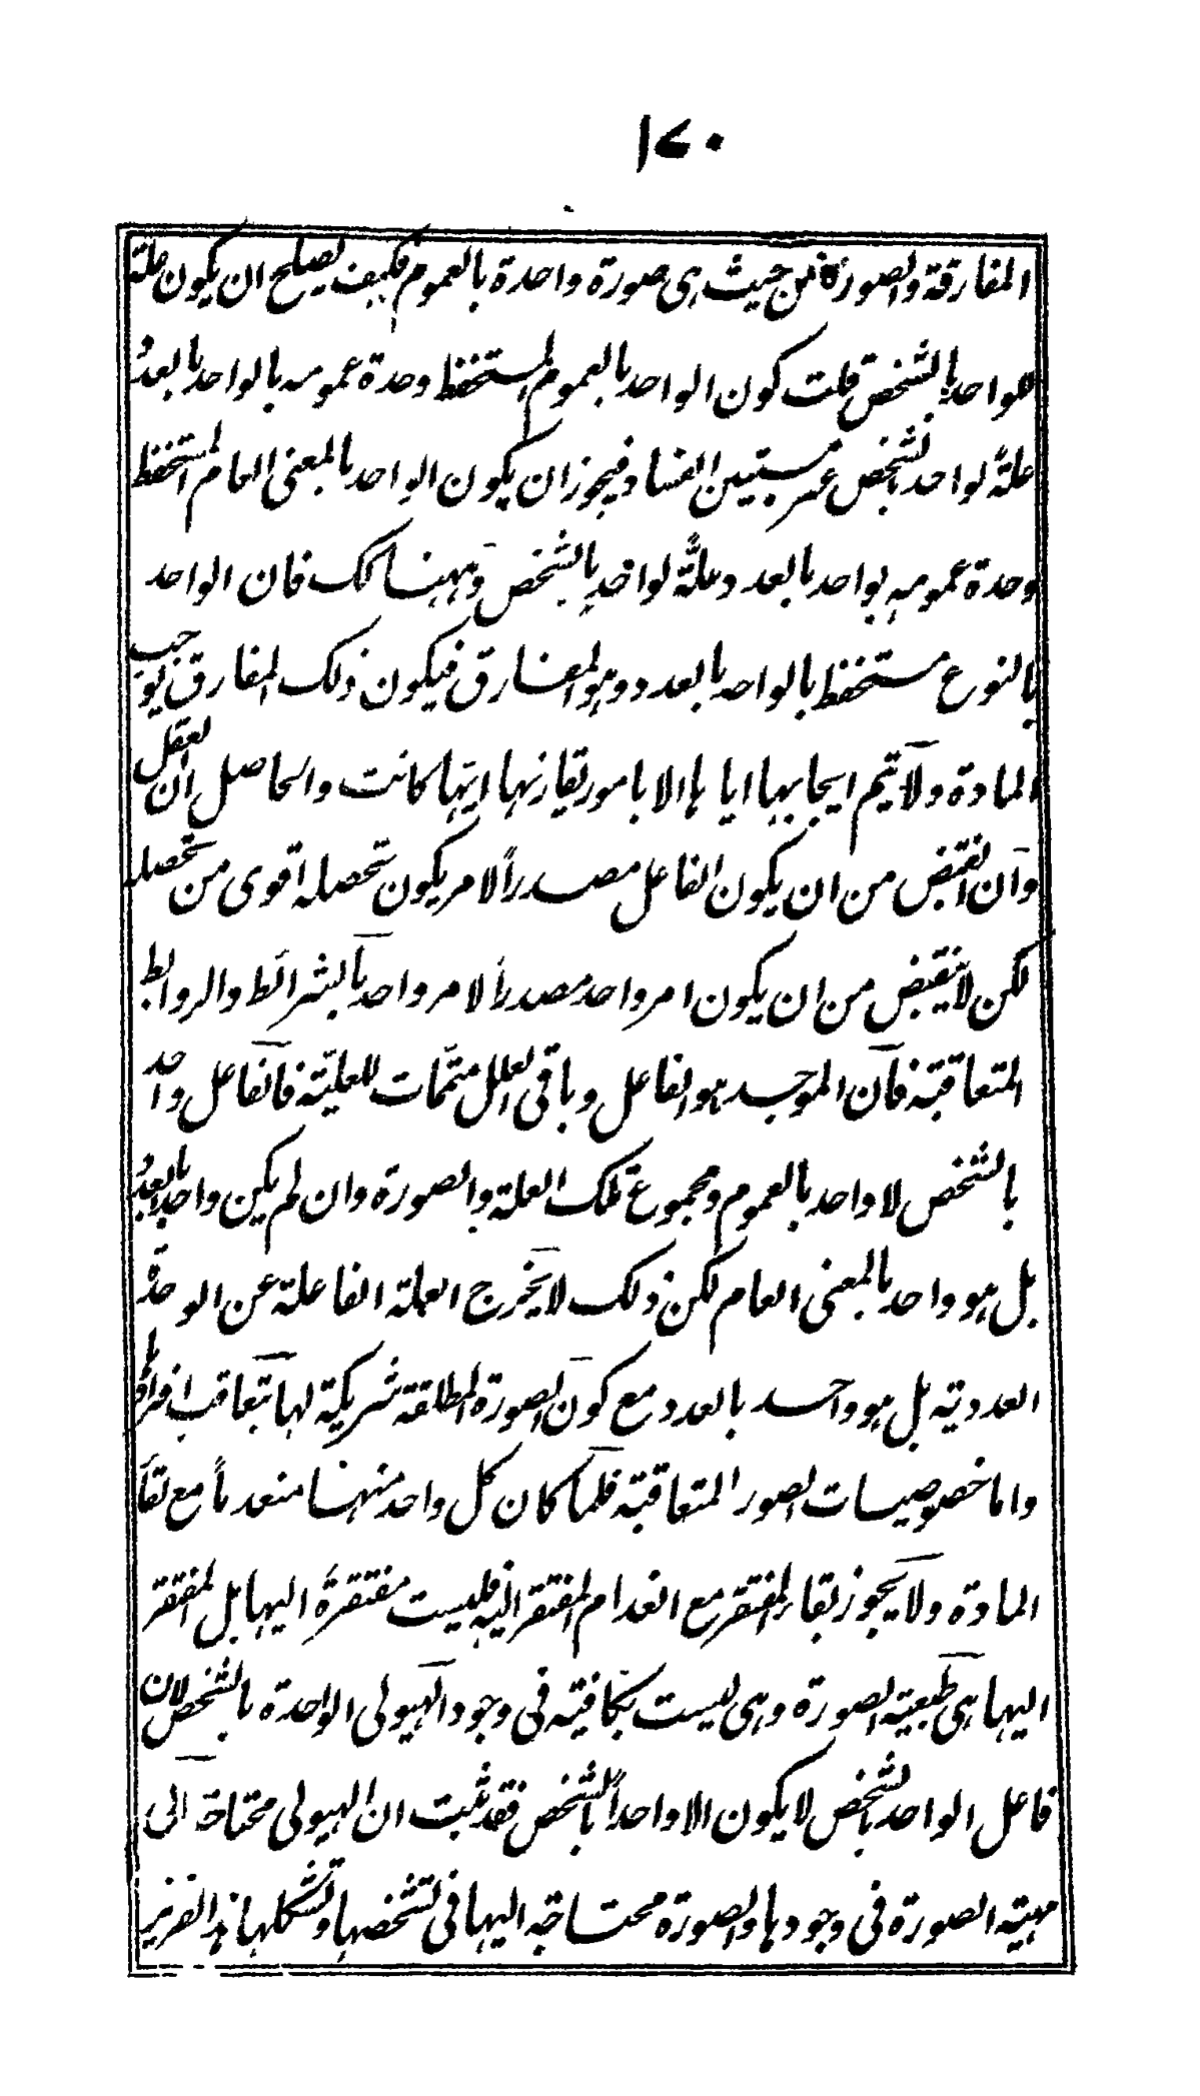 ١٧٠
المفارقة والصورة من حيث هى صورة واحدة بالعموم فكيف يصلح ان يكون علة
للواحد بالشخص قلت كون الواحد بالعموم المستحفظ وحدة عمومه بالواحد بالعدد
علة لواحد بالشخص غير مستبين الفساد فيجوز ان يكون الواحد بالمعنى العام المستحفظ
وحدة عمومه بواحد بالعدد وعلة لواحد بالشخص وههنا كك فان الواحد
بالنوع مستحفظ بالواحد بالعدد وهو المفارق فيكون ذلك المفارق يوجب
المادة ولا يتم ايجابها اياها الا بامور تقارنها ايتها كانت والحاصل ان العقل
وان انقبض من ان يكون الفاعل مصدراً لامر يكون تحصله اقوى من تحصله
لكن لا ينقبض من ان يكون امر واحد مصدراً لامر واحد بالشرائط والروابط
المتعاقبة فان الموجد هو الفاعل وباقى العلل متممات للعلية فالفاعل واحد
بالشخص لا واحد بالعموم ومجموع تلك العلة والصورة وان لم يكن واحداً بالعدد
بل هو واحد بالمعنى العام لكن ذلك لا يخرج العلة الفاعلة عن الوحدة
العددية بل هو واحد بالعدد مع كون الصورة المطلقة شريكة لها بتعاقب افرادها
واما خصوصيات الصور المتعاقبة فلما كان كل واحد منها منعدماً مع بقاء
المادة ولا يجوز بقاء المفتقر مع انعدام المفتقر اليه فليست مفتقرة اليها بل المفتقر
اليها هى طبيعة الصورة وهى ليست بكافية فى وجود الهيولى الواحدة بالشخص لان
فاعل الواحد بالشخص لا يكون الا واحداً بالشخص فقد ثبت ان الهيولى محتاجة الى
مهية الصورة فى وجودها والصورة محتاجة اليها فى تشخصها وتشكلها هذا تقرير